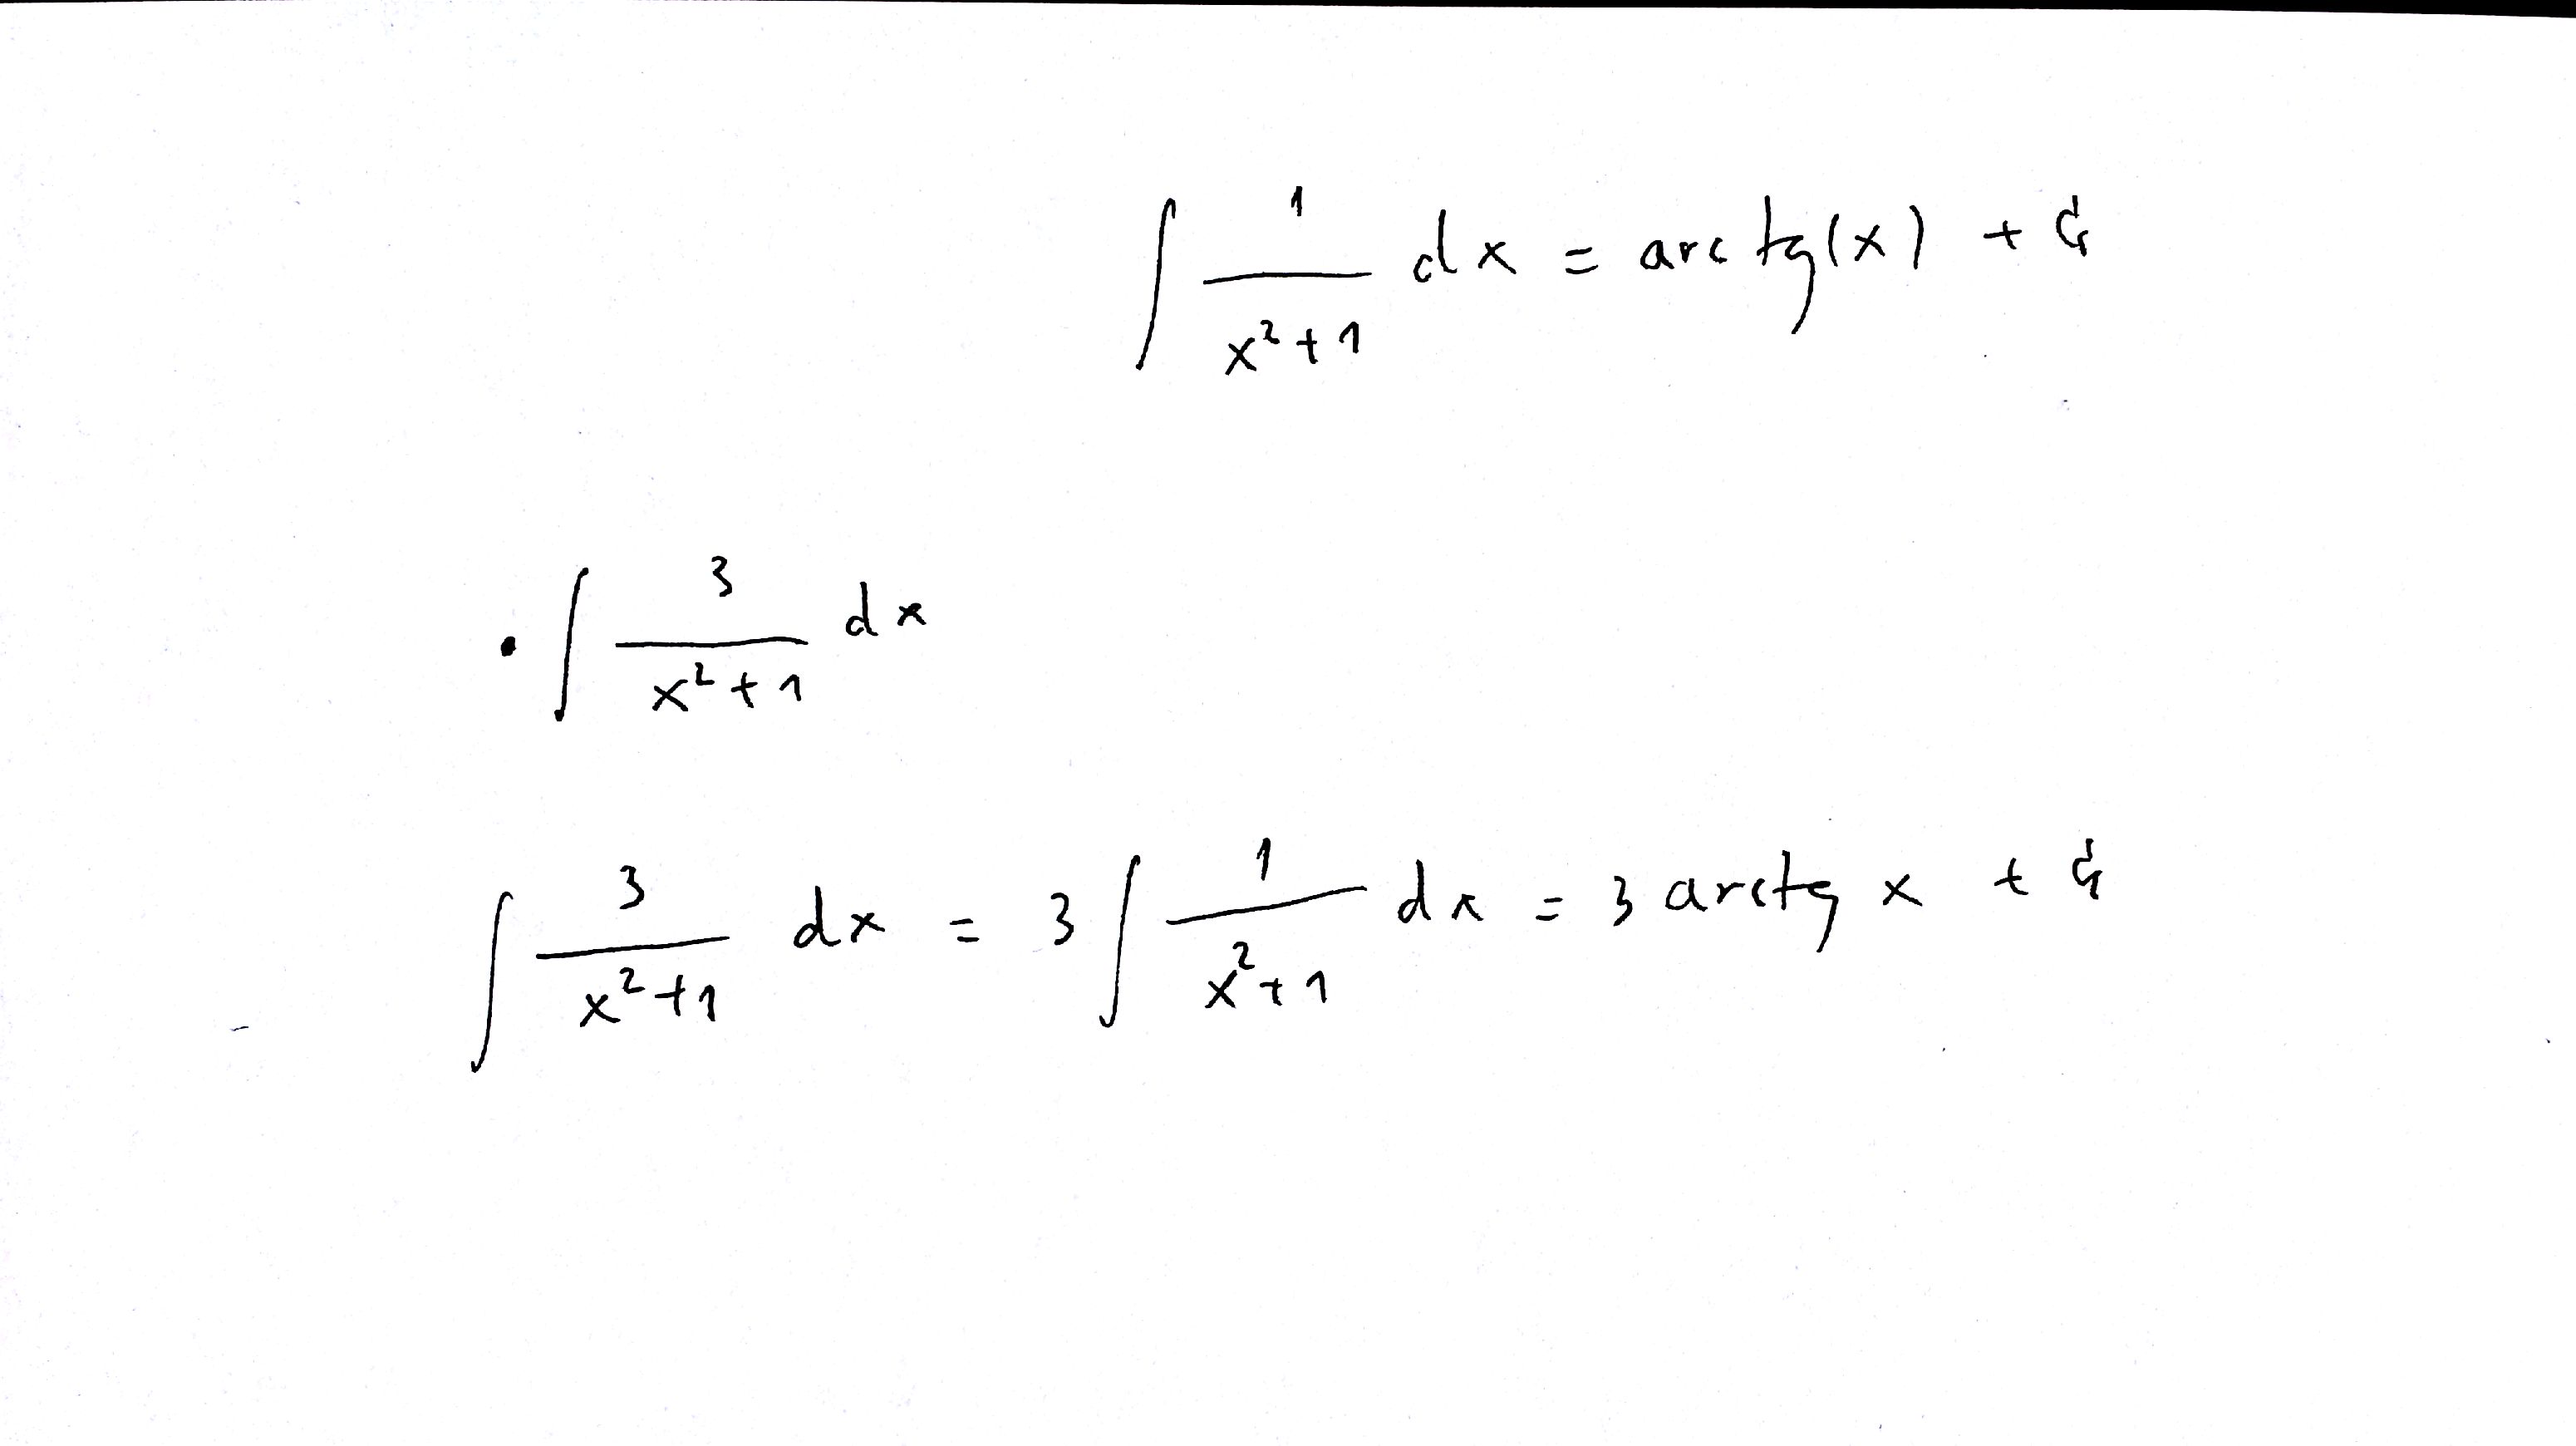 ∫ 1/(x²+1) dx = arctg(x) + C
• ∫ 3/(x²+1) dx
∫ 3/(x²+1) dx = 3 ∫ 1/(x²+1) dx = 3 arctg x + C